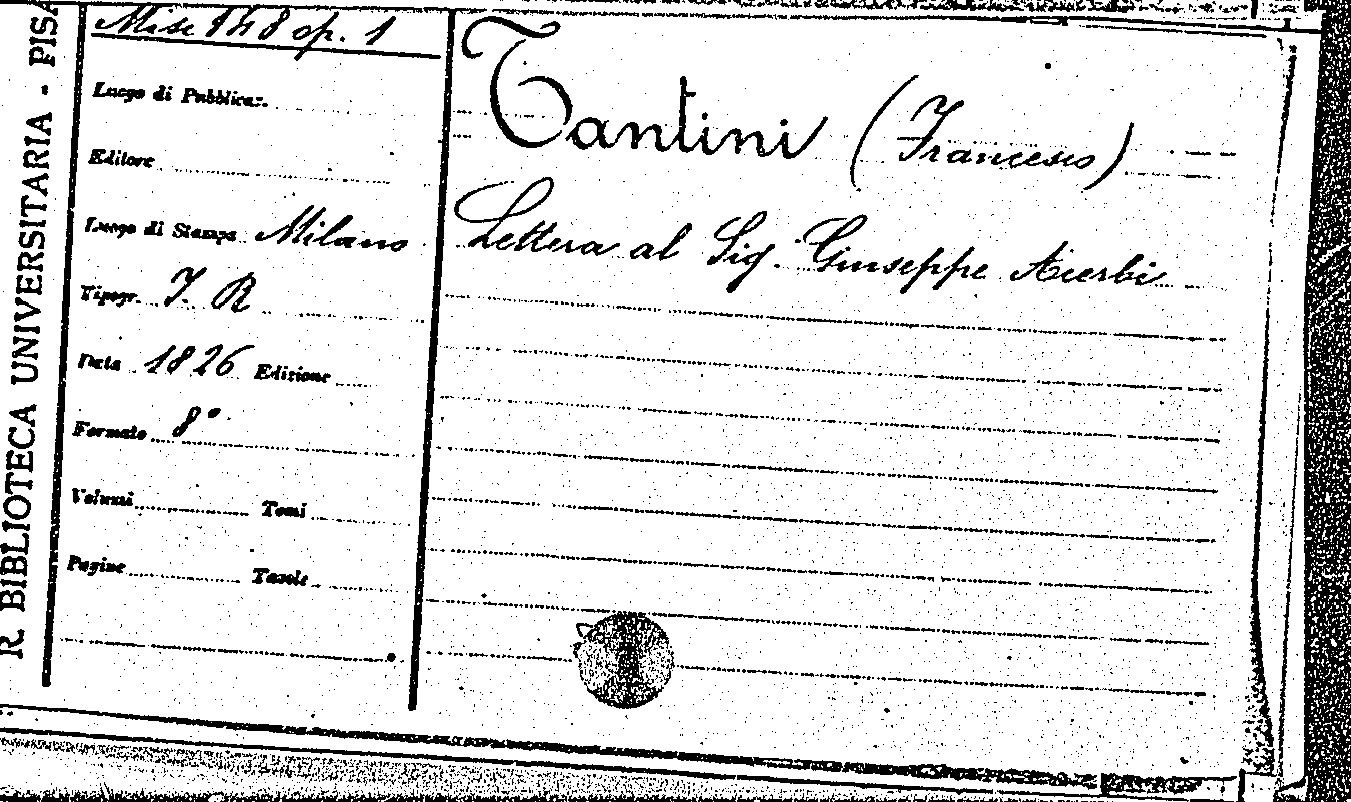 R. BIBLIOTECA UNIVERSITARIA - PISA
Misc 148 op. 1
Luogo di Pubblicaz.
Editore
Luogo di Stampa Milano
Tipogr. I. R
Data 1826 Edizione
Formato 8º
Volumi Tomi
Pagine Tavole
Tantini (Francesco)
Lettera al Sig. Giuseppe Acerbi